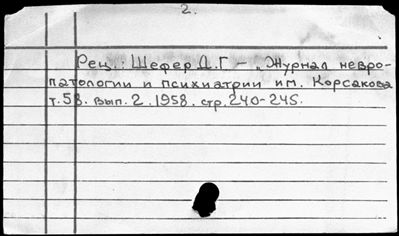 2.
Рец.: Шефер Д.Г – „Журнал невро-
патологии и психиатрии им. Корсакова
т.58. вып. 2. 1958. стр. 240-245.